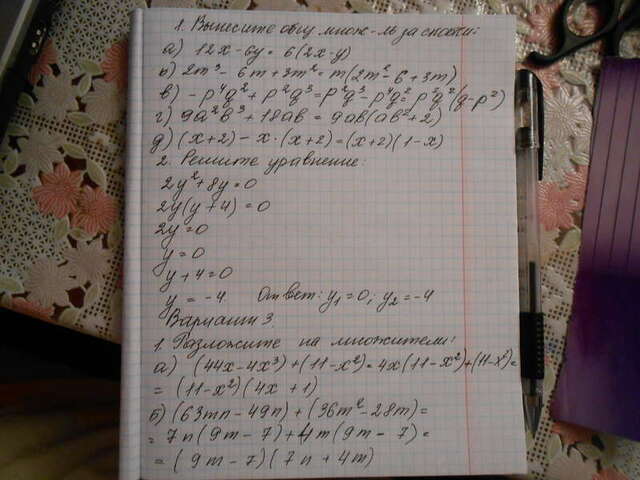 1. Вынесите общ множ-ль за скобки:
а) 12x - 6y = 6(2x-y)
б) 2m³ - 6m + 3m² = m(2m² - 6 + 3m)
в) -p⁴q² + p²q³ = p²q³ - p⁴q² = p²q²(q-p²)
г) 9a²b³ + 18ab = 9ab(ab²+2)
д) (x+2) - x·(x+2) = (x+2)(1-x)
2. Решите уравнение:
2y²+8y=0
2y(y+4)=0
2y=0
y=0
y+4=0
y = -4 Ответ: y₁=0; y₂=-4
Вариант 3.
1. Разложите на множители:
а) (44x-4x³)+(11-x²)=4x(11-x²)+(11-x²)=
= (11-x²)(4x+1)
б) (63mn-49n)+(36m²-28m)=
= 7n(9m-7)+4m(9m-7)=
= (9m-7)(7n+4m)